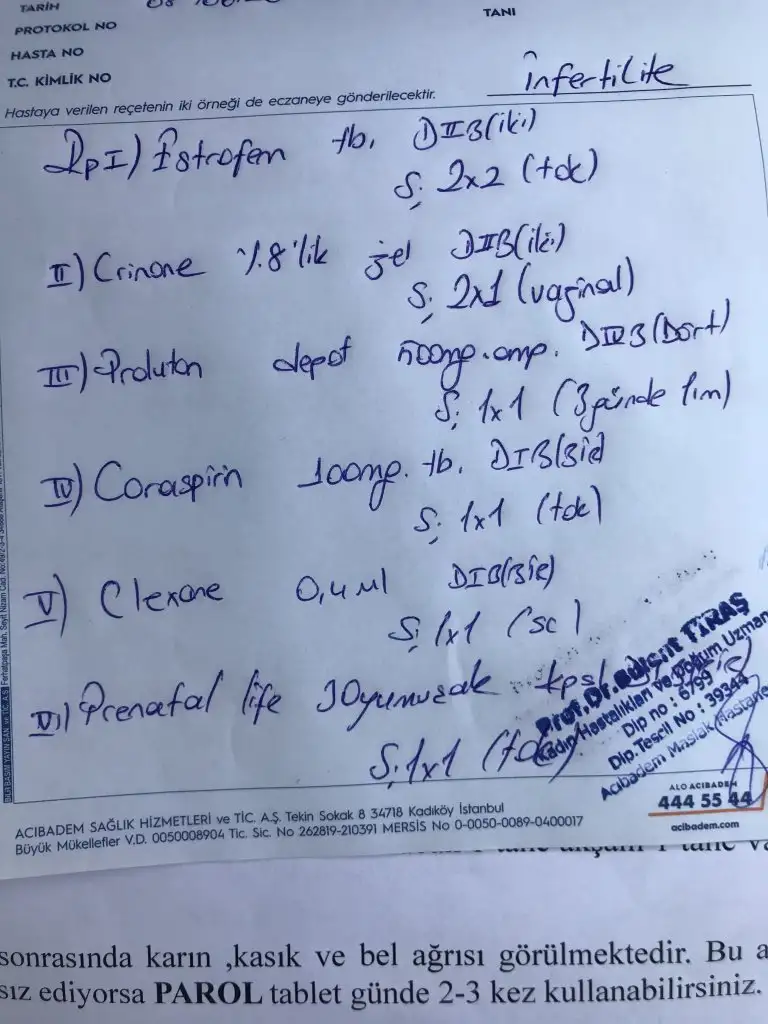 TARİH
PROTOKOL NO
HASTA NO
T.C. KİMLİK NO
TANI
Hastaya verilen reçetenin iki örneği de eczaneye gönderilecektir.
İnfertilite
RpI) Estrofem tb. DIIB(iki)
S: 2x2 (tok)
II) Crinone %8'lik jel DIIB(iki)
S: 2x1 (vaginal)
III) Proluton depot 500mg.amp. DIVB(Dört)
S: 1x1 (3günde 1im)
IV) Coraspirin 100mg. tb. DIB(Bir)
S: 1x1 (tok)
V) Clexane 0,4 ml DIB(Bir)
S: 1x1 (sc)
VI) Prenatal life 30yumuşak kpsl
S: 1x1 (tok)
Prof.Dr.Bülent TIRAŞ
Kadın Hastalıkları ve Doğum Uzmanı
Dip no : 6799
Dip.Tescil No : 39344
Acıbadem Maslak Hastane
ALO ACIBADEM
444 55 44
acibadem.com
ACIBADEM SAĞLIK HİZMETLERİ ve TİC. A.Ş. Tekin Sokak 8 34718 Kadıköy İstanbul
Büyük Mükellefler V.D. 0050008904 Tic. Sic. No 262819-210391 MERSİS No 0-0050-0089-0400017
sonrasında karın ,kasık ve bel ağrısı görülmektedir. Bu a
sız ediyorsa PAROL tablet günde 2-3 kez kullanabilirsiniz.